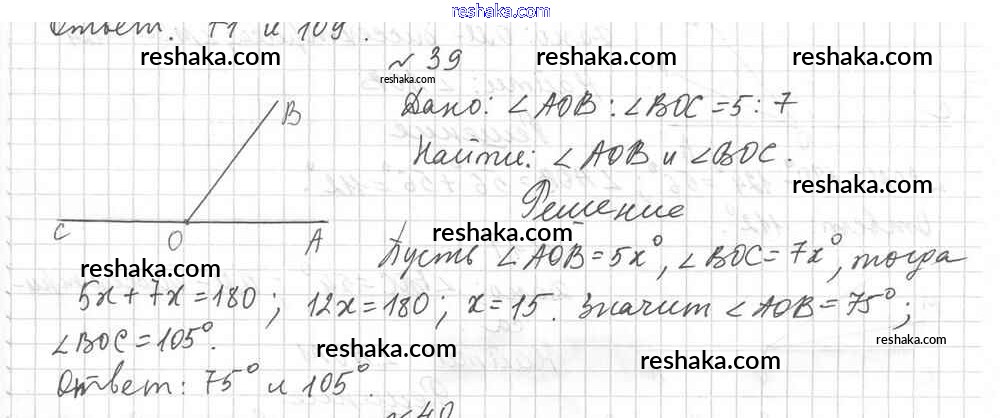 reshaka.com
Ответ. 71 и 109.
№ 39
Дано: ∠AOB : ∠BOC = 5 : 7
Найти: ∠AOB и ∠BOC.
Решение
B
C O A
Пусть ∠AOB = 5x°, ∠BOC = 7x°, тогда
5x + 7x = 180 ; 12x = 180 ; x = 15. Значит ∠AOB = 75° ;
∠BOC = 105°.
Ответ: 75° и 105°.
№ 40
reshaka.com
reshaka.com
reshaka.com
reshaka.com
reshaka.com
reshaka.com
reshaka.com
reshaka.com
reshaka.com
reshaka.com